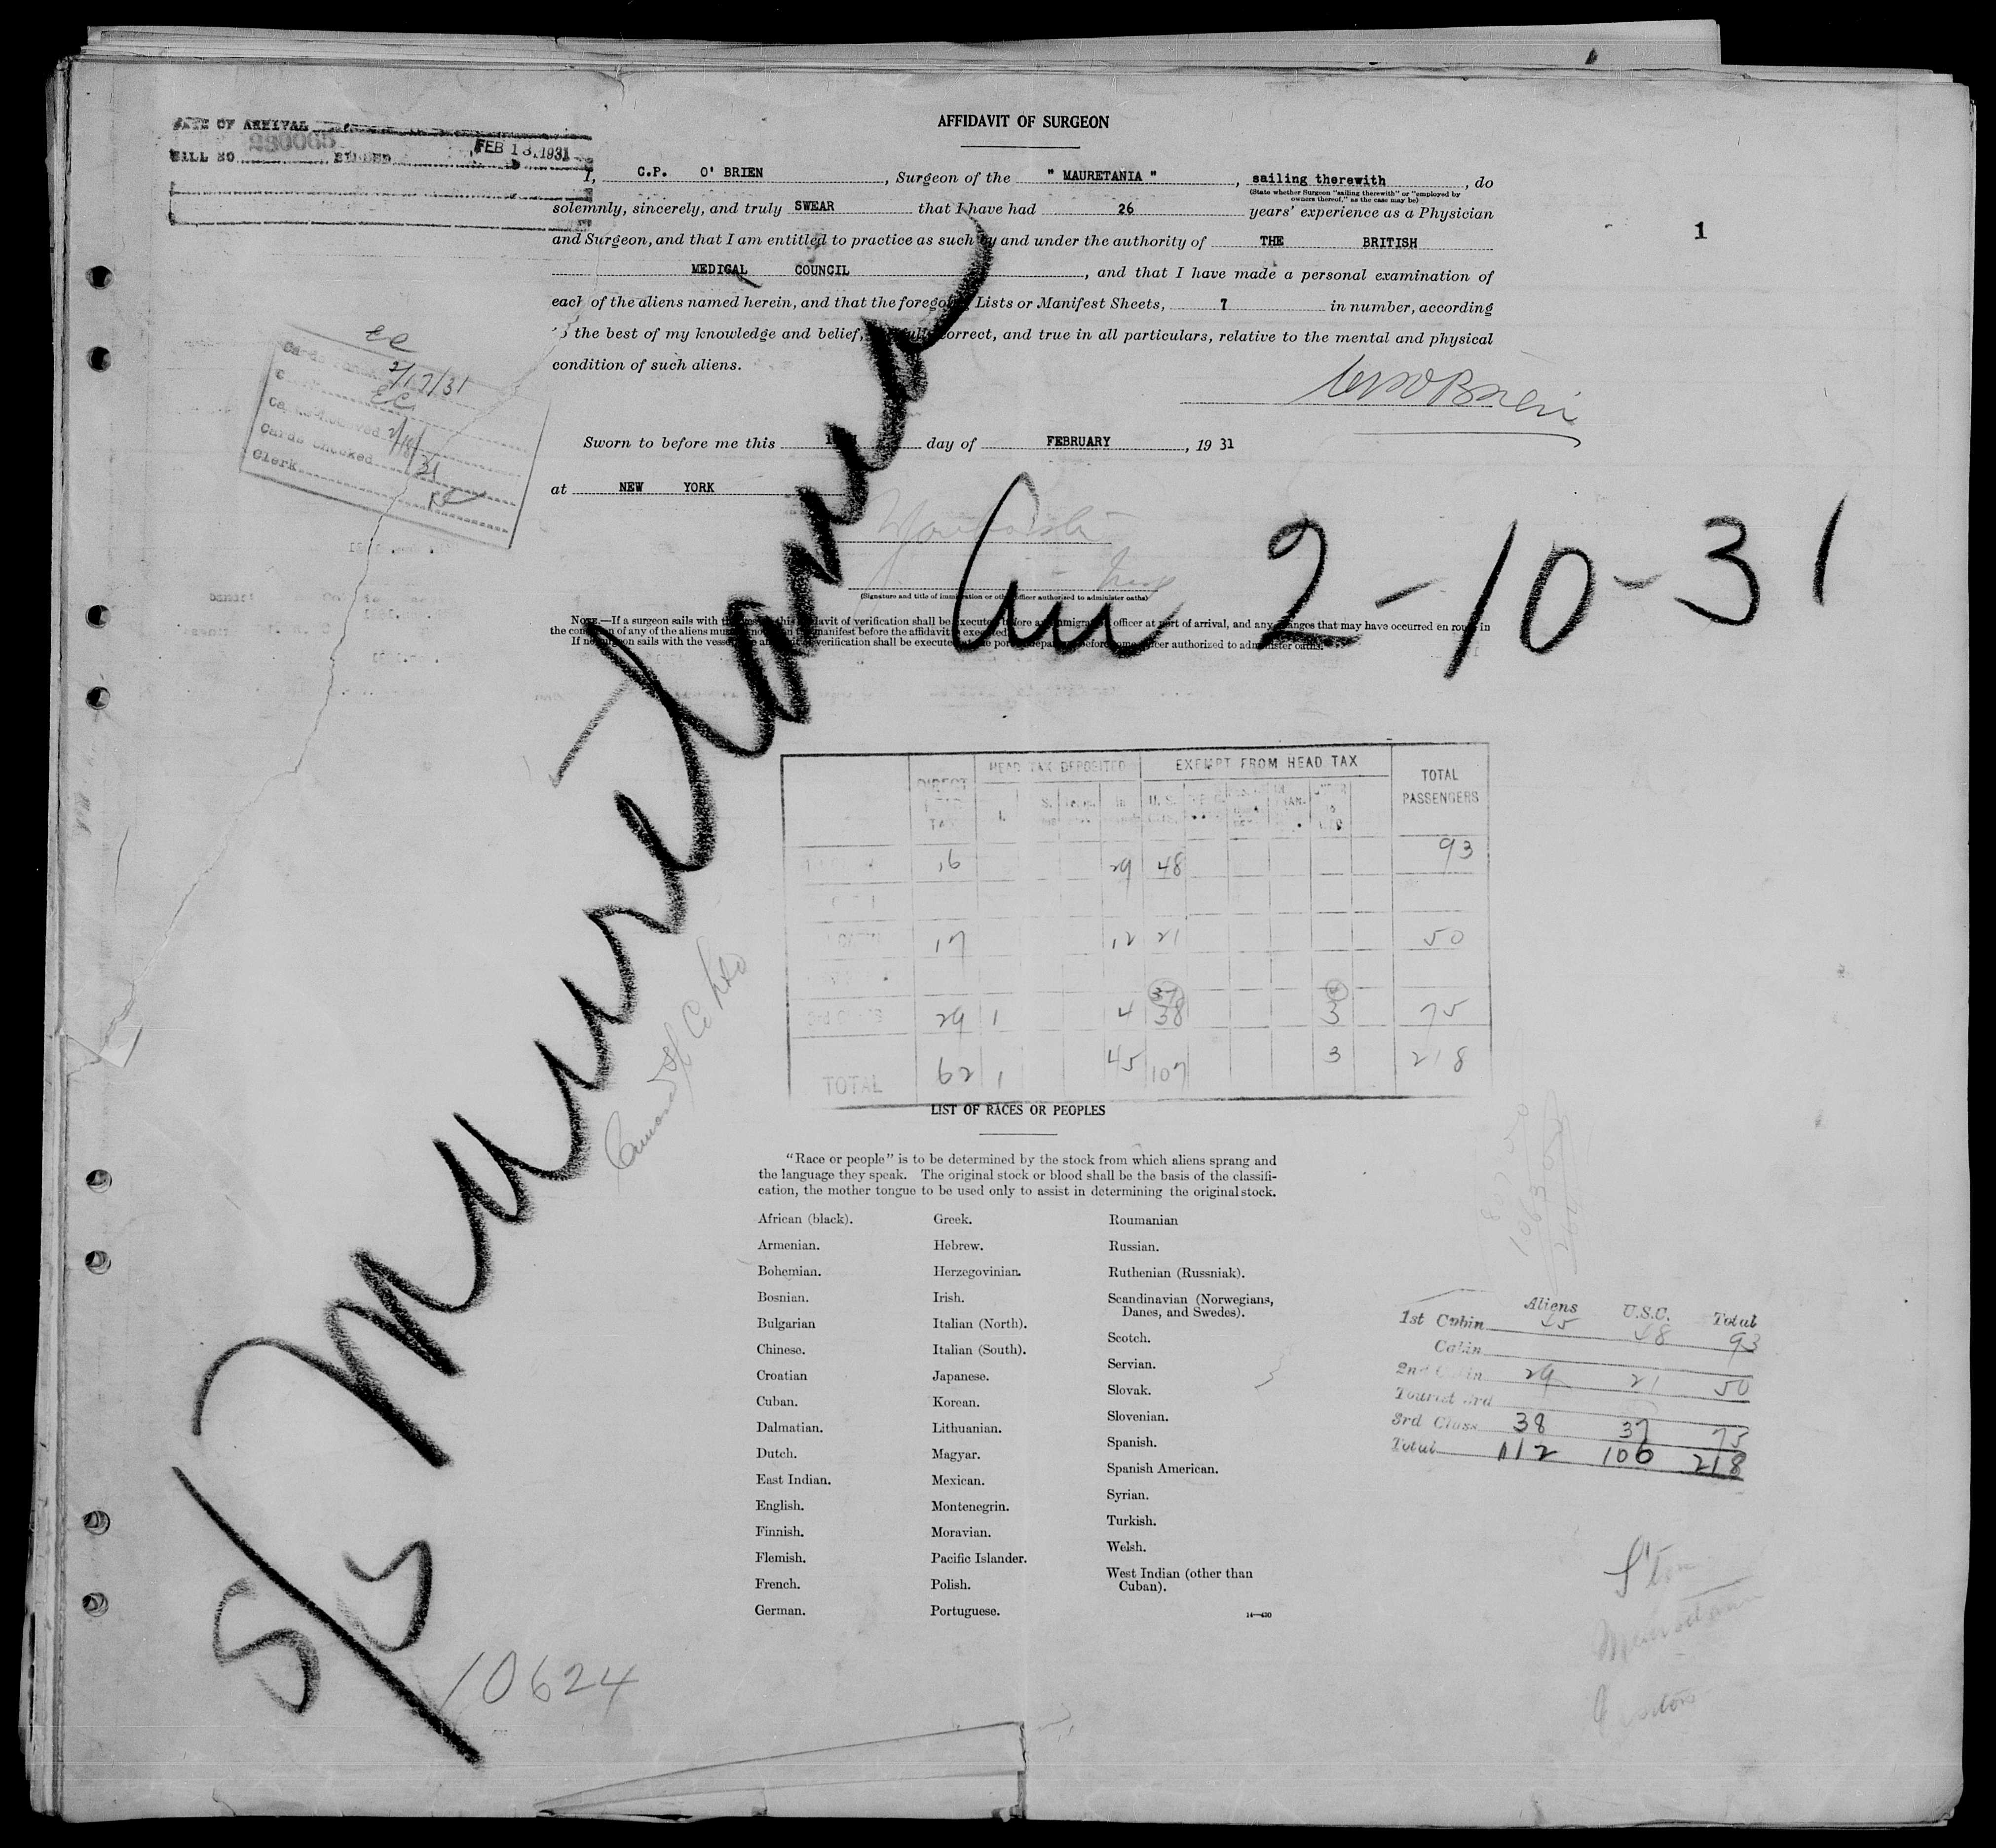 AFFIDAVIT OF SURGEON
DATE OF ARRIVAL
BILL NO. 230065 BILLED FEB 13 1931
I, C.P. O' BRIEN, Surgeon of the " MAURETANIA ", sailing therewith, do
(State whether Surgeon "sailing therewith" or "employed by
owners thereof," as the case may be)
solemnly, sincerely, and truly SWEAR that I have had 26 years' experience as a Physician
and Surgeon, and that I am entitled to practice as such by and under the authority of THE BRITISH
MEDICAL COUNCIL, and that I have made a personal examination of
each of the aliens named herein, and that the foregoing Lists or Manifest Sheets, 7 in number, according
the best of my knowledge and belief, full, correct, and true in all particulars, relative to the mental and physical
condition of such aliens.
1
EC
2/17/31
EC
Cards Received 2/18/31
Cards Checked
Clerk
Sworn to before me this day of FEBRUARY, 19 31
at NEW YORK
(Signature and title of immigration or other officer authorized to administer oaths)
S/S Mauretania
Arr 2-10-31
NOTE.—If a surgeon sails with the vessel this affidavit of verification shall be executed before an immigration officer at port of arrival, and any changes that may have occurred en route in
the condition of any of the aliens must be noted on the manifest before the affidavit is executed.
If no surgeon sails with the vessel the affidavit of verification shall be executed at the port of departure before some officer authorized to administer oaths.
DIRECT HEAD TAX HEAD TAX DEPOSITED EXEMPT FROM HEAD TAX TOTAL PASSENGERS
16 29 48 93
17 12 21 50
37
29 1 4 38 3 75
TOTAL 62 1 45 107 3 218
LIST OF RACES OR PEOPLES
"Race or people" is to be determined by the stock from which aliens sprang and
the language they speak. The original stock or blood shall be the basis of the classifi-
cation, the mother tongue to be used only to assist in determining the original stock.
African (black).
Armenian.
Bohemian.
Bosnian.
Bulgarian
Chinese.
Croatian
Cuban.
Dalmatian.
Dutch.
East Indian.
English.
Finnish.
Flemish.
French.
German.
Greek.
Hebrew.
Herzegovinian.
Irish.
Italian (North).
Italian (South).
Japanese.
Korean.
Lithuanian.
Magyar.
Mexican.
Montenegrin.
Moravian.
Pacific Islander.
Polish.
Portuguese.
Roumanian
Russian.
Ruthenian (Russniak).
Scandinavian (Norwegians,
Danes, and Swedes).
Scotch.
Servian.
Slovak.
Slovenian.
Spanish.
Spanish American.
Syrian.
Turkish.
Welsh.
West Indian (other than
Cuban).
14—430
Aliens U.S.C. Total
1st Cabin 45 48 93
Cabin
2nd Cabin 29 21 50
Tourist 3rd
3rd Class 38 37 75
Total 112 106 218
10624